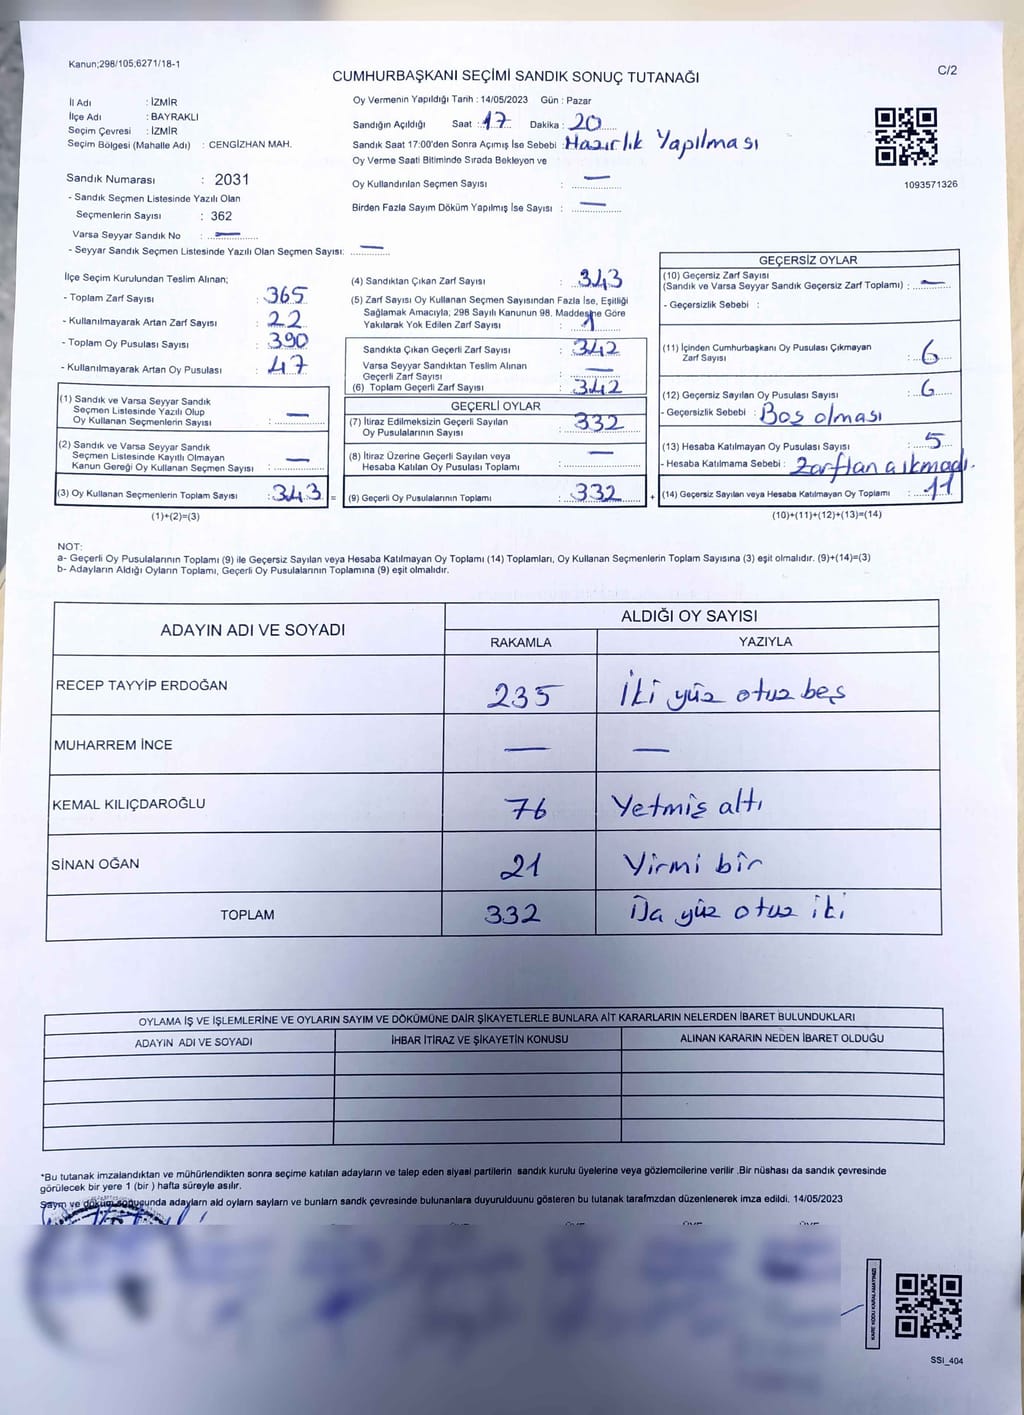 Kanun;298/105;6271/18-1
C/2
CUMHURBAŞKANI SEÇİMİ SANDIK SONUÇ TUTANAĞI
İl Adı : İZMİR
İlçe Adı : BAYRAKLI
Seçim Çevresi : İZMİR
Seçim Bölgesi (Mahalle Adı) : CENGİZHAN MAH.
Oy Vermenin Yapıldığı Tarih : 14/05/2023 Gün : Pazar
Sandığın Açıldığı Saat : 17 Dakika : 20
Sandık Saat 17:00'den Sonra Açımış İse Sebebi : Hazırlık Yapılması
Oy Verme Saati Bitiminde Sırada Bekleyon ve
Oy Kullandırılan Seçmen Sayısı : —
Birden Fazla Sayım Döküm Yapılmış İse Sayısı : —
1093571326
Sandık Numarası : 2031
- Sandık Seçmen Listesinde Yazılı Olan
Seçmenlerin Sayısı : 362
Varsa Seyyar Sandık No : —
- Seyyar Sandık Seçmen Listesinde Yazılı Olan Seçmen Sayısı: —
İlçe Seçim Kurulundan Teslim Alınan;
- Toplam Zarf Sayısı : 365
- Kullanılmayarak Artan Zarf Sayısı : 22
- Toplam Oy Pusulası Sayısı : 390
- Kullanılmayarak Artan Oy Pusulası : 47
(1) Sandık ve Varsa Seyyar Sandık
Seçmen Listesinde Yazılı Olup
Oy Kullanan Seçmenlerin Sayısı : —
(2) Sandık ve Varsa Seyyar Sandık
Seçmen Listesinde Kayıtlı Olmayan
Kanun Gereği Oy Kullanan Seçmen Sayısı : —
(3) Oy Kullanan Seçmenlerin Toplam Sayısı : 343 =
(1)+(2)=(3)
(4) Sandıktan Çıkan Zarf Sayısı : 343
(5) Zarf Sayısı Oy Kullanan Seçmen Sayısından Fazla İse, Eşitliği
Sağlamak Amacıyla; 298 Sayılı Kanunun 98. Maddesine Göre
Yakılarak Yok Edilen Zarf Sayısı : 1
Sandıkta Çıkan Geçerli Zarf Sayısı : 342
Varsa Seyyar Sandıktan Teslim Alınan
Geçerli Zarf Sayısı : —
(6) Toplam Geçerli Zarf Sayısı : 342
GEÇERLİ OYLAR
(7) İtiraz Edilmeksizin Geçerli Sayılan
Oy Pusulalarının Sayısı : 332
(8) İtiraz Üzerine Geçerli Sayılan veya
Hesaba Katılan Oy Pusulası Toplamı : —
(9) Geçerli Oy Pusulalarının Toplamı : 332 +
GEÇERSİZ OYLAR
(10) Geçersiz Zarf Sayısı
(Sandık ve Varsa Seyyar Sandık Geçersiz Zarf Toplamı) : —
- Geçersizlik Sebebi :
(11) İçinden Cumhurbaşkanı Oy Pusulası Çıkmayan
Zarf Sayısı : 6
(12) Geçersiz Sayılan Oy Pusulası Sayısı : 6
- Geçersizlik Sebebi : Boş olması
(13) Hesaba Katılmayan Oy Pusulası Sayısı : 5
- Hesaba Katılmama Sebebi : Zarftan çıkmadı.
(14) Geçersiz Sayılan veya Hesaba Katılmayan Oy Toplamı : 11
(10)+(11)+(12)+(13)=(14)
NOT:
a- Geçerli Oy Pusulalarının Toplamı (9) ile Geçersiz Sayılan veya Hesaba Katılmayan Oy Toplamı (14) Toplamları, Oy Kullanan Seçmenlerin Toplam Sayısına (3) eşit olmalıdır. (9)+(14)=(3)
b- Adayların Aldığı Oyların Toplamı, Geçerli Oy Pusulalarının Toplamına (9) eşit olmalıdır.
ADAYIN ADI VE SOYADI ALDIĞI OY SAYISI
RAKAMLA YAZIYLA
RECEP TAYYİP ERDOĞAN 235 İki yüz otuz beş
MUHARREM İNCE — —
KEMAL KILIÇDAROĞLU 76 Yetmiş altı
SİNAN OĞAN 21 Yirmi bir
TOPLAM 332 yüz otuz iki
OYLAMA İŞ VE İŞLEMLERİNE VE OYLARIN SAYIM VE DÖKÜMÜNE DAİR ŞİKAYETLERLE BUNLARA AİT KARARLARIN NELERDEN İBARET BULUNDUKLARI
ADAYIN ADI VE SOYADI İHBAR İTİRAZ VE ŞİKAYETİN KONUSU ALINAN KARARIN NEDEN İBARET OLDUĞU
*Bu tutanak imzalandıktan ve mühürlendikten sonra seçime katılan adayların ve talep eden siyasi partilerin sandık kurulu üyelerine veya gözlemcilerine verilir .Bir nüshası da sandık çevresinde
görülecek bir yere 1 (bir ) hafta süreyle asılır.
Saym ve döküm sonuçunda adaylarn ald oylarn saylarn ve bunlarn sandk çevresinde bulunanlara duyurulduunu gösteren bu tutanak tarafmzdan düzenlenerek imza edildi. 14/05/2023
KARE KODU KARALAMAYINIZ!
SSI_404